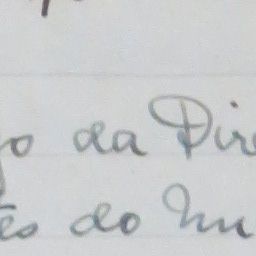 go da Dire
ês do Mu